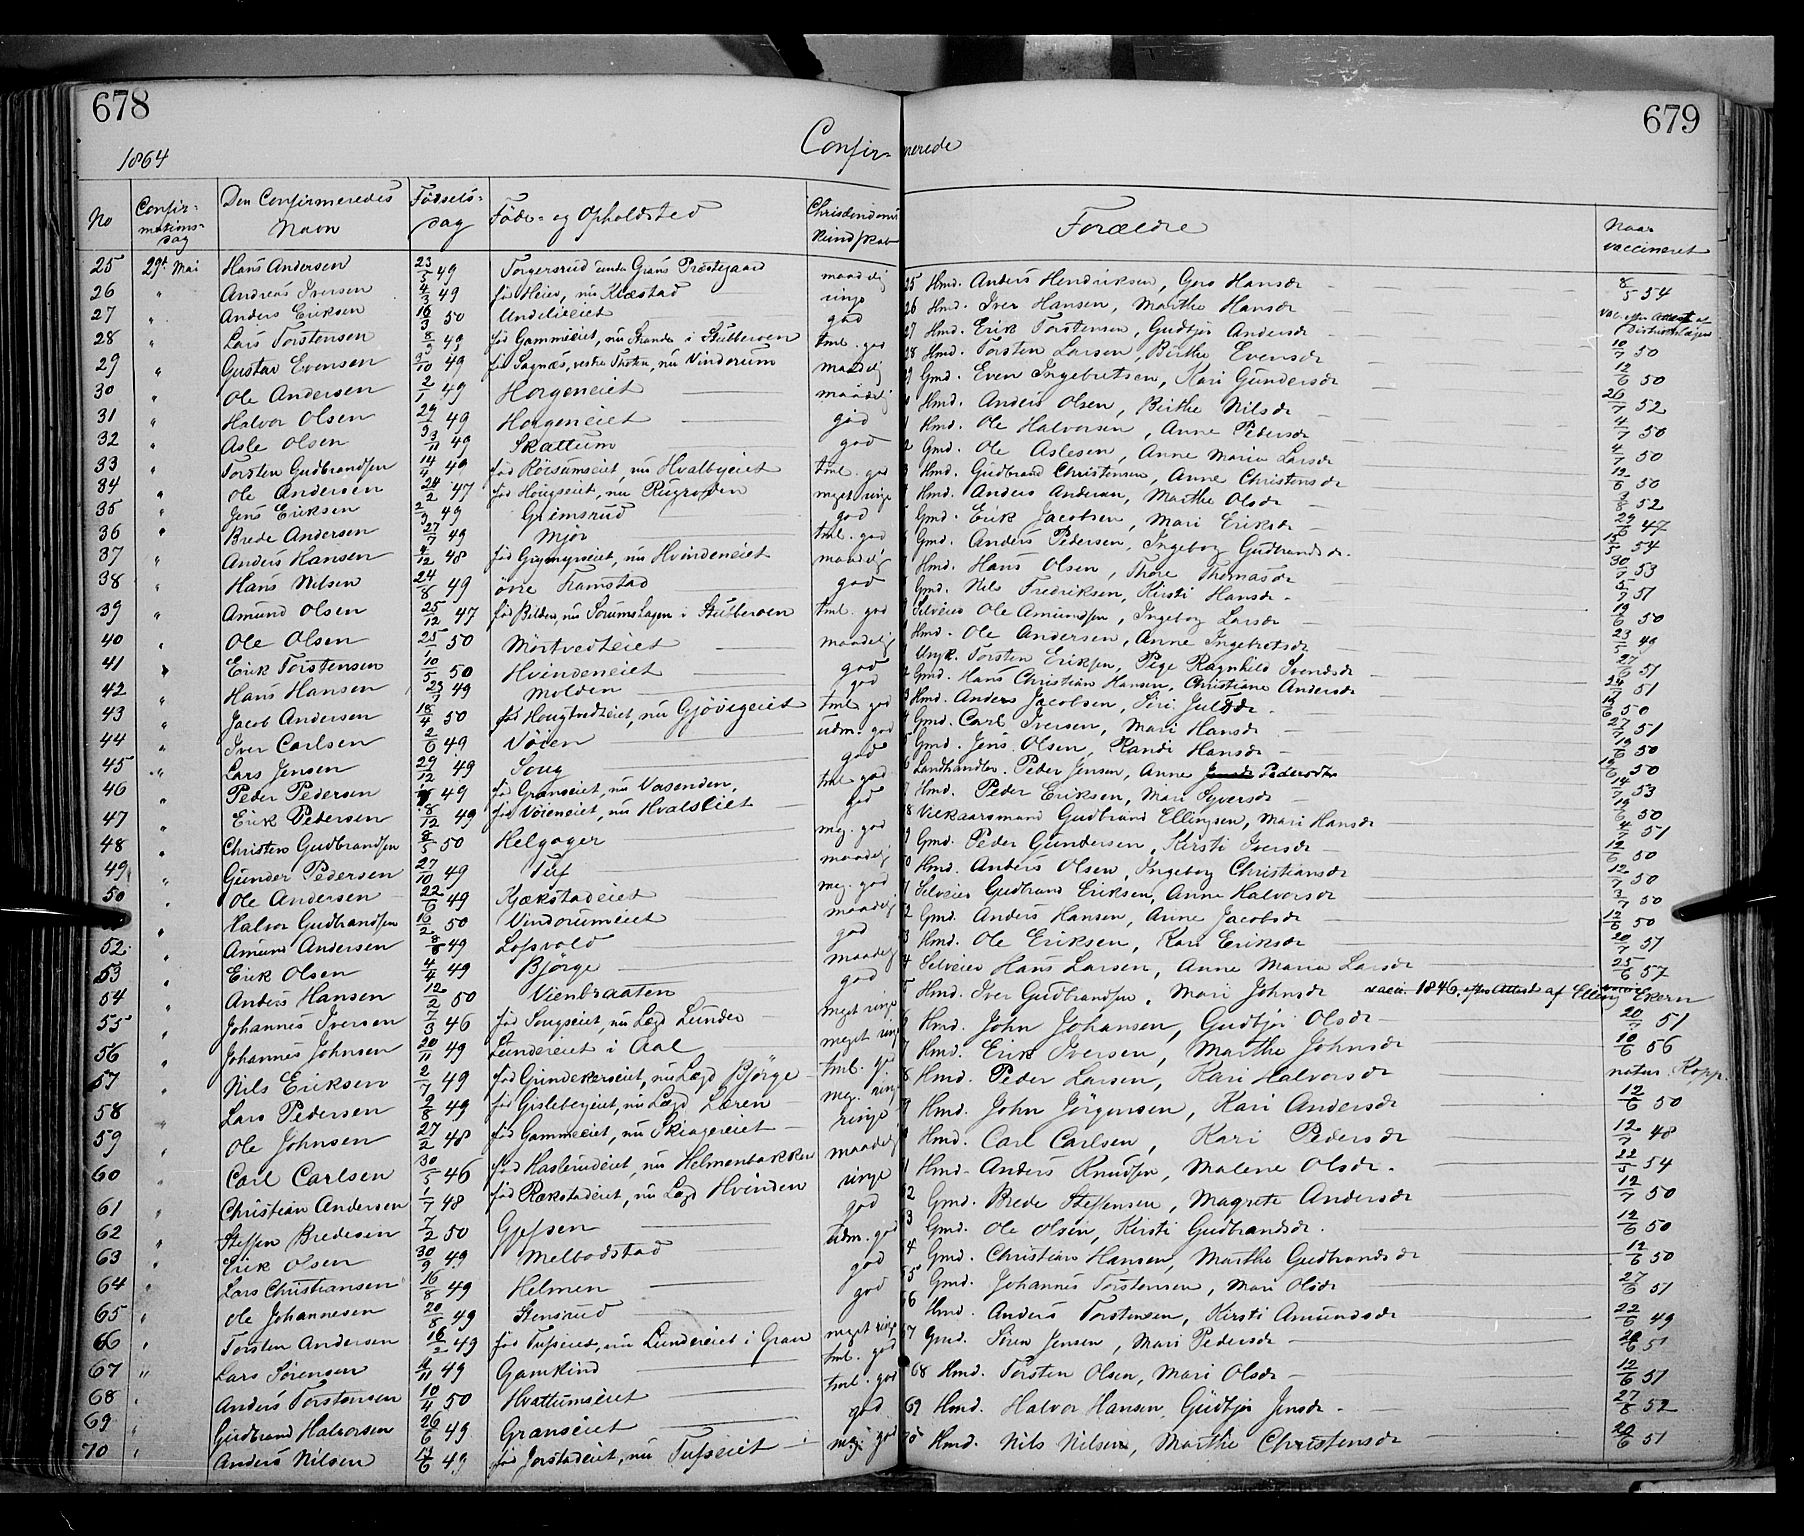 678
679
1864
Confirmerede
No
Confirmationsdag
Den Confirmeredes Navn
Fødselsdag
Føde- og Opholdsted
Christendomskundskab
Forældre
Naar vaccineret
25 29de Mai Hans Andersen 23/5 49 Torgersrud under Grans Præstegaard maadelig 25 Hmd. Anders Hendriksen, Guro Hansdr 8/5 54
26 " Andreas Iversen 4/3 49 fød Heier, nu Klæstad ringe 26 Hmd. Iver Hansen, Marthe Hansdr
27 " Anders Eriksen 16/3 50 Undelieiet god 27 Hmd. Erik Torstensen, Gudbjør Andersdr
28 " Lars Torstensen 8/9 49 fød Gammeeiet, nu Strande i Stubberoen tml. god 28 Hmd. Torsten Larsen, Birthe Evensdr 10/7 50
29 " Gustav Evensen 3/10 49 fød Sognæs, vestre Thoten, nu Vinderum maadelig 29 Gmd. Even Ingebretsen, Kari Gundersdr 12/6 50
30 " Ole Andersen 2/1 49 Horgeneiet maadelig Hmd. Anders Olsen, Birthe Nilsdr 26/7 52
31 " Halvor Olsen 29/9 49 Horgeneiet god 1 Hmd. Ole Halvorsen, Anne Pedersdr 4/7 50
32 " Asle Olsen 3/11 49 Skattum god 2 Gmd. Ole Aslesen, Anne Maria Larsdr 4/7 50
33 " Torsten Gudbrandsen 14/4 49 fød Rösumseiet, nu Hvalbyeiet tml. god 3 Hmd. Gudbrand Christensen, Anne Christensdr 12/6 50
34 " Ole Andersen 24/2 47 fød Hougseiet, nu Rugroden meget ringe Hmd. Anders Andersen, Marthe Olsdr 52
35 " Jens Eriksen 2/9 49 Grimsrud god Gmd. Erik Jacobsen, Mari Eriksdr 47
36 " Brede Andersen 27/7 49 Mjör tml. god Gmd. Anders Pedersen, Ingeborg Gudbrandsdr. 54
37 " Anders Hansen 4/12 48 fød Grymyreiet, nu Hvindeneiet maadelig Hmd. Hans Olsen, Thore Thomasdr 53
38 " Hans Nilsen 24/8 49 övre Framstad god Gmd. Nils Fredriksen, Kirsti Hansdr 5/7 51
39 " Amund Olsen 25/12 47 fød Bilden, nu Sorumshagen i Stubberoen tml. god Selveier Ole Amundsen, Ingeborg Larsdr 50
40 " Ole Olsen 25/1 50 Mörtvedteiet maadelig Hmd. Ole Andersen, Anne Ingebretsdr 23/5 49
41 " Erik Torstensen 10/5 50 Hvindeneiet god Ungk. Torsten Eriksen, Pige Ragnhild Svendsdr 27/6 51
42 " Hans Hansen 23/7 49 Molden god 2 Gmd. Hans Christian Hansen, Christiane Andersdr 51
43 " Jacob Andersen 18/4 50 fød Hougtvedteiet, nu Gjövigeiet tml. god 3 Hmd. Anders Jacobsen, Siri Julsdr. 50
44 " Iver Carlsen 2/6 49 Vöien udm. god 4 Gmd. Carl Iversen, Mari Hansdr 51
45 " Lars Jensen 29/12 49 Soug god 5 Gmd. Jens Olsen, Randi Hansdr 50
46 " Peder Pedersen 49 fød Granseiet, nu Vasenden, tml. god 6 Landhandler Peder Jensen, Anne Pedersdtr 50
47 " Erik Pedersen 8/12 49 fød Vöieneiet, nu Hvalseiet god 7 Hmd. Peder Eriksen, Mari Syversdr 53
48 " Christen Gudbrandsen 8/5 50 Helgager meg. god 8 Vilkaarsmand Gudbrand Ellingsen, Mari Hansdr 50
49 " Gunder Pedersen 27/10 49 Tuf maadelig 9 Gmd. Peder Gundersen, Kirsti Iversdr 51
50 " Ole Andersen 22/6 49 Kjækstadeiet meg. god Hmd. Anders Olsen, Ingeborg Christiansdr 12/6 50
" Halvor Gudbrandsen 16/2 50 Vindorumeiet maadelig 1 Selveier Gudbrand Eriksen, Anne Halvorsdr 12/7 50
52 " Amund Andersen 8/8 49 Lofsvold god 2 Gmd. Anders Hansen, Anne Jacobsdr 3/7 50
53 " Erik Olsen 4/4 49 Björge maadelig 3 Hmd. Ole Eriksen, Kari Eriksdr 12/6 50
54 " Anders Hansen 12/2 50 Vienbraaten god 4 Selveier Hans Larsen, Anne Maria Larsdr 20/7 57
55 " Johannes Iversen 7/3 46 fød Sougseiet, nu Lægd Lunder meget ringe 5 Hmd. Iver Gudbrandsen, Mari Johnsdr vacc. 1846, efter Attest af Elling Ekern 25/6 57
56 " Johannes Johnsen 20/11 49 Lundereiet i Aal meget ringe 6 Hmd. John Johansen, Gudbjör Olsdr 20/7 51
57 " Nils Eriksen 2/7 49 fød Grindekerseiet, nu Lægd Björge tml. g. 7 Hmd. Erik Iversen, Marthe Johnsdr 10/6 56
58 " Lars Pedersen 9/8 49 fød Gislebergeiet, nu Lægd Læren meg. ring 8 Hmd. Peder Larsen, Kari Halvorsdr natur. Kopp.
59 " Ole Johnsen 27/2 48 fød Gammeeiet, nu Skiagereiet ringe 9 Hmd. John Jörgensen, Kari Andersdr 12/6 50
60 " Carl Carlsen 30/5 46 fød Haslerudeiet, nu Helmenbakken maadelig Hmd. Carl Carlsen, Kari Pedersdr 12/7 48
61 " Christian Andersen 1/7 48 fød Rækstadeiet, nu Lægd Hvinden ringe 1 Hmd. Anders Knudsen, Malene Olsdr. 22/5 54
62 " Steffen Bredesen 7/2 50 Gjefsen god 2 Gmd. Brede Steffensen, Magrete Andersdr 12/7 50
63 " Erik Olsen 30/9 49 Melbodstad udm. god 3 Gmd. Ole Olsen, Kirsti Gudbrandsdr. 12/6 50
64 " Lars Christiansen 16/8 49 Helmen god 4 Gmd. Christian Hansen, Marthe Gudbrandsdr 12/6 50
65 " Ole Johannesen 20/8 49 Stensrud god 5 Gmd. Johannes Torstensen, Mari Olsdr 27/6 51
66 " Torsten Andersen 16/2 49 fød Tufseiet, nu Lundereiet i Gran meget ringe 66 Hmd. Anders Torstensen, Kirsti Amundsdr 22/6 49
67 " Lars Sørensen 4/11 49 Gamkind tml. god 67 Gmd. Sören Jensen, Mari Pedersdr 26/6 51
68 " Anders Torstensen 10/4 50 Hvattumseiet tml. god 68 Hmd. Torsten Olsen, Mari Olsdr 12/6 51
69 " Gudbrand Halvorsen 26/6 49 Granseiet god 69 Hmd. Halvor Hansen, Gudbjør Jensdr 27/8 52
70 " Anders Nilsen 14/6 49 fød Jorstadeiet, nu Tufseiet meg. god 70 Hmd. Nils Nilsen, Marthe Christensdr 20/6 51